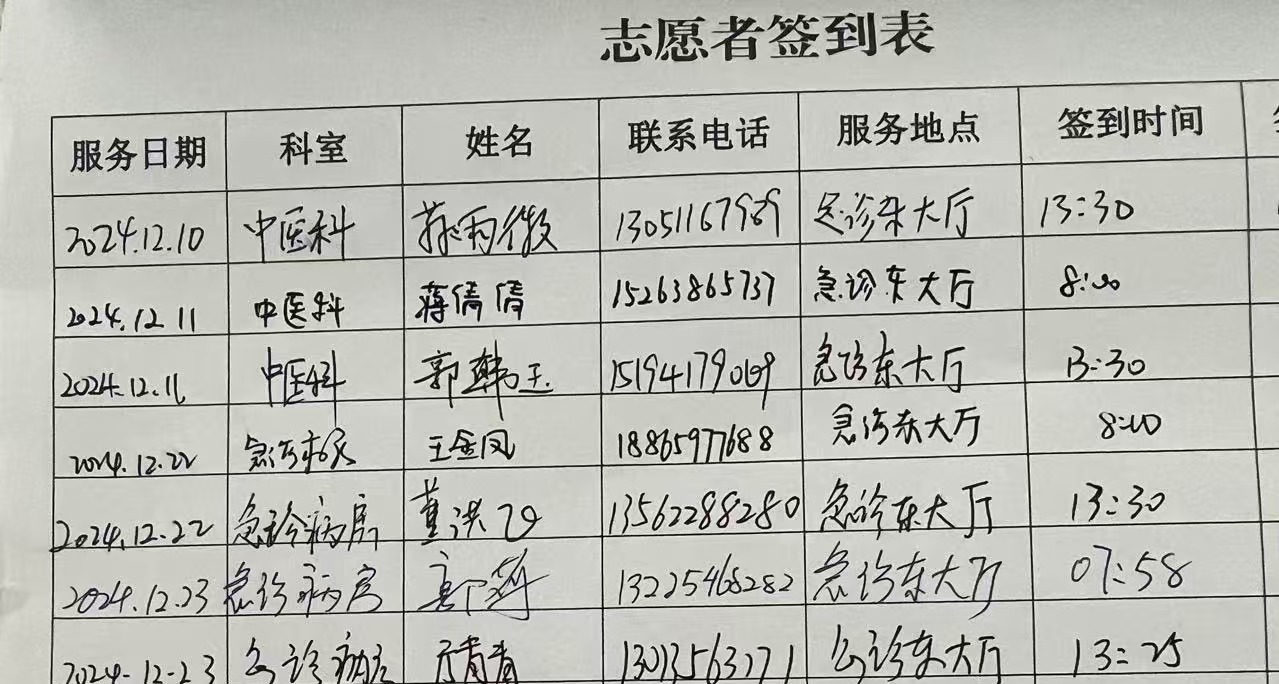 志愿者签到表
服务日期 科室 姓名 联系电话 服务地点 签到时间
2024.12.10 中医科 薛雨薇 13051167989 急诊东大厅 13:30
2024.12.11 中医科 蒋倩倩 15263865737 急诊东大厅 8:00
2024.12.11 中医科 郭韩玉 15194179069 急诊东大厅 13:30
2024.12.22 急诊病房 王金凤 18865977688 急诊东大厅 8:00
2024.12.22 急诊病房 董洪 13562288280 急诊东大厅 13:30
2024.12.23 急诊病房 13225468282 急诊东大厅 07:58
2024.12.23 急诊病房 青青 13013563171 急诊东大厅 13:25